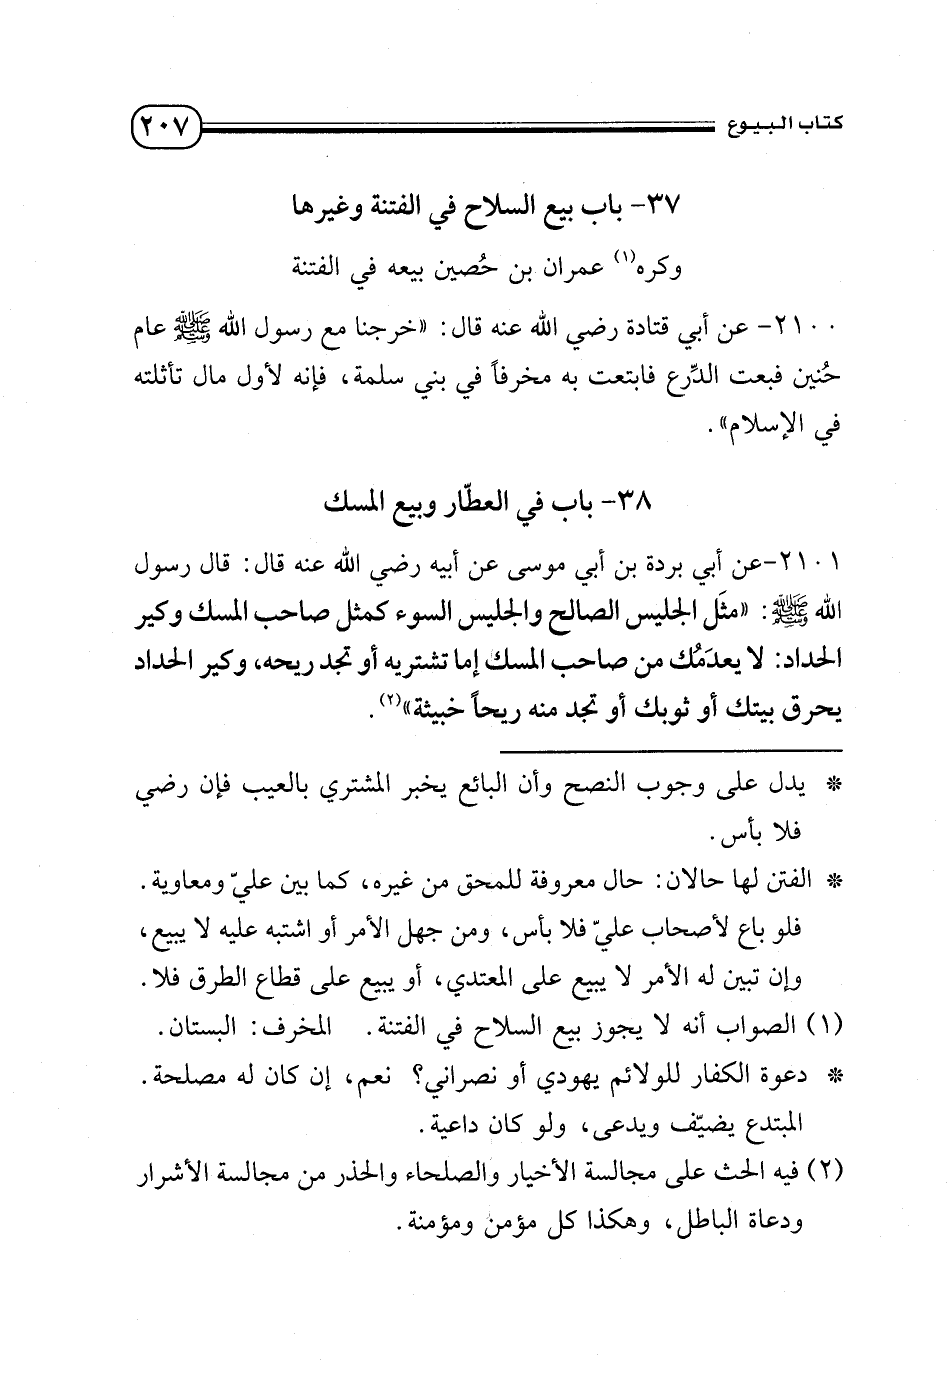 كتاب البيوع
٢٠٧
٣٧- باب بيع السلاح في الفتنة وغيرها
وكره(١) عمران بن حُصين بيعه في الفتنة
٢١٠٠- عن أبي قتادة رضي الله عنه قال: «خرجنا مع رسول الله ﷺ عام
حُنين فبعت الدِّرع فابتعت به مخرفاً في بني سلمة، فإنه لأول مال تأثلته
في الإسلام».
٣٨- باب في العطّار وبيع المسك
٢١٠١-عن أبي بردة بن أبي موسى عن أبيه رضي الله عنه قال: قال رسول
الله ﷺ: «مثَل الجليس الصالح والجليس السوء كمثل صاحب المسك وكير
الحداد: لا يعدَمُك من صاحب المسك إما تشتريه أو تجد ريحه، وكير الحداد
يحرق بيتك أو ثوبك أو تجد منه ريحاً خبيثة»(٢).
* يدل على وجوب النصح وأن البائع يخبر المشتري بالعيب فإن رضي
فلا بأس.
* الفتن لها حالان: حال معروفة للمحق من غيره، كما بين عليّ ومعاوية.
فلو باع لأصحاب عليّ فلا بأس، ومن جهل الأمر أو اشتبه عليه لا يبيع،
وإن تبين له الأمر لا يبيع على المعتدي، أو يبيع على قطاع الطرق فلا.
(١) الصواب أنه لا يجوز بيع السلاح في الفتنة. المخرف: البستان.
* دعوة الكفار للولائم يهودي أو نصراني؟ نعم، إن كان له مصلحة.
المبتدع يضيّف ويدعى، ولو كان داعية.
(٢) فيه الحث على مجالسة الأخيار والصلحاء والحذر من مجالسة الأشرار
ودعاة الباطل، وهكذا كل مؤمن ومؤمنة.